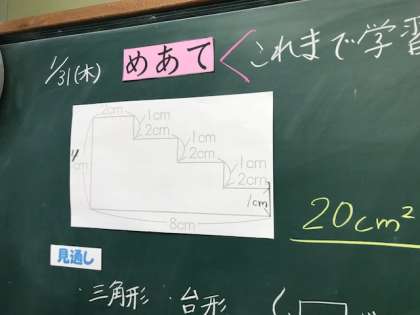 1/31(木)
めあて
これまで学習
2cm
1cm
2cm
1cm
2cm
1cm
2cm
1cm
cm
8cm
20cm²
見通し
・三角形 ・台形